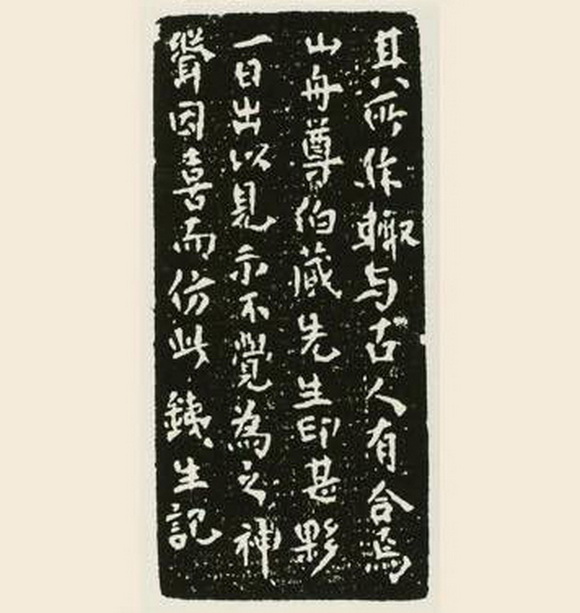 其所作輙与古人有合焉
山舟尊伯藏先生印甚夥
一日出以見示不覺為之神
聳因喜而仿此 鐵生記